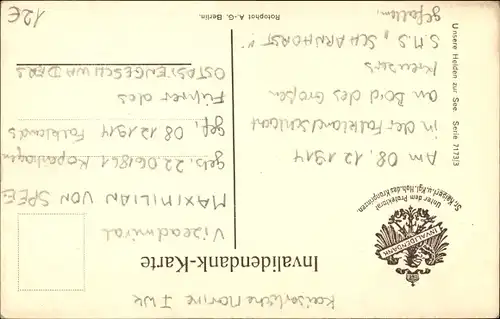 Kaiserliche Marine I WK
Invalidendank-Karte
INVALIDENDANK
Unter dem Protektorat
Sr. Kaiserl. u. Kgl. Hoh. des Kronprinzen.
Unsere Helden zur See Serie 7173/3
Am 08.12.1914
in der Falklandschlacht
an Bord des Großen
Kreuzers
S.M.S „SCHARNHORST"
gefallen.
Rotophot A.-G. Berlin.
Vizeadmiral
MAXIMILIAN VON SPEE
geb. 22.06.1861 Kopenhagen
gef. 08.12.1914 Falklands
Führer des
OSTASIENGESCHWADERS
12€